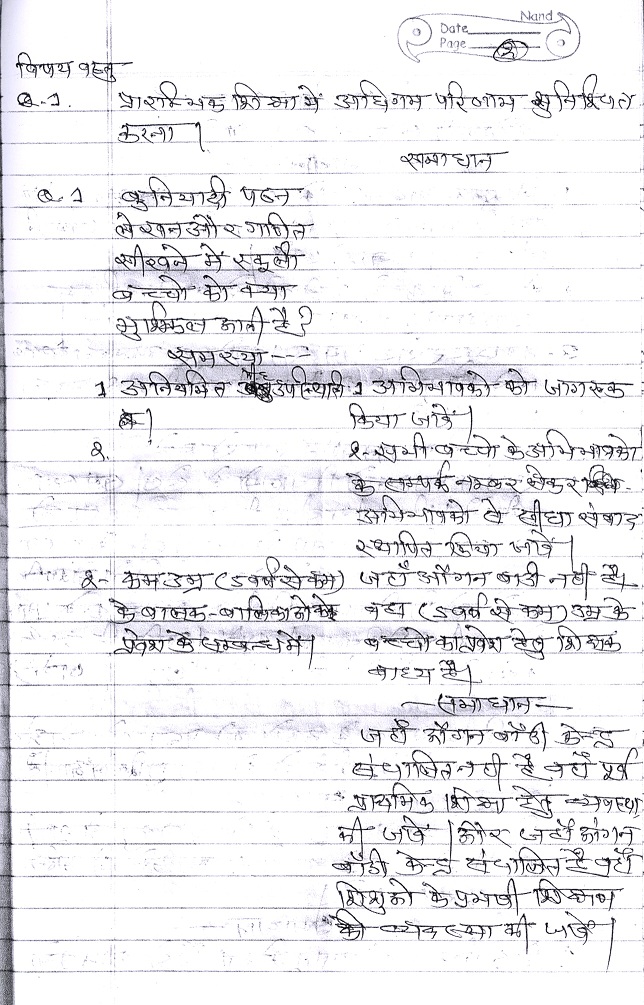 Nand
Date
Page 2
विषय वस्तु
Q.1. प्रारम्भिक शिक्षा में अधिगम परिणाम सुनिश्चित
करना।
समाधान
Q.1 बुनियादी पठन
लेखन और गणित
सीखने में स्कूली
बच्चो को क्या
मुश्किल आती है?
समस्या---
1 अनियमित उपस्थिति
1 अभिभावको को जागरूक
किया जावें।
2.
2- सभी बच्चो के अभिभावको
के सम्पर्क नम्बर लेकर
अभिभावको से सीधा संवाद
स्थापित किया जावें।
2- कम उम्र (5 वर्ष से कम)
के बालक-बालिकाओ के
प्रवेश के सम्बन्ध में।
जहाँ आँगन बाडी नही है।
वहा (5 वर्ष से कम) उम्र के
बच्चो का प्रवेश हेतु शिक्षक
बाध्य है।
—समाधान—
जहाँ आँगन बाँडी केन्द्र
संचालित नही है वहाँ पूर्व
प्राथमिक शिक्षा हेतु व्यवस्था
की जावें। और जहाँ आंगन
बाँडी केन्द्र संचालित है वहाँ
शिशुओ के प्रभावी शिक्षण
की व्यवस्था की जावें।